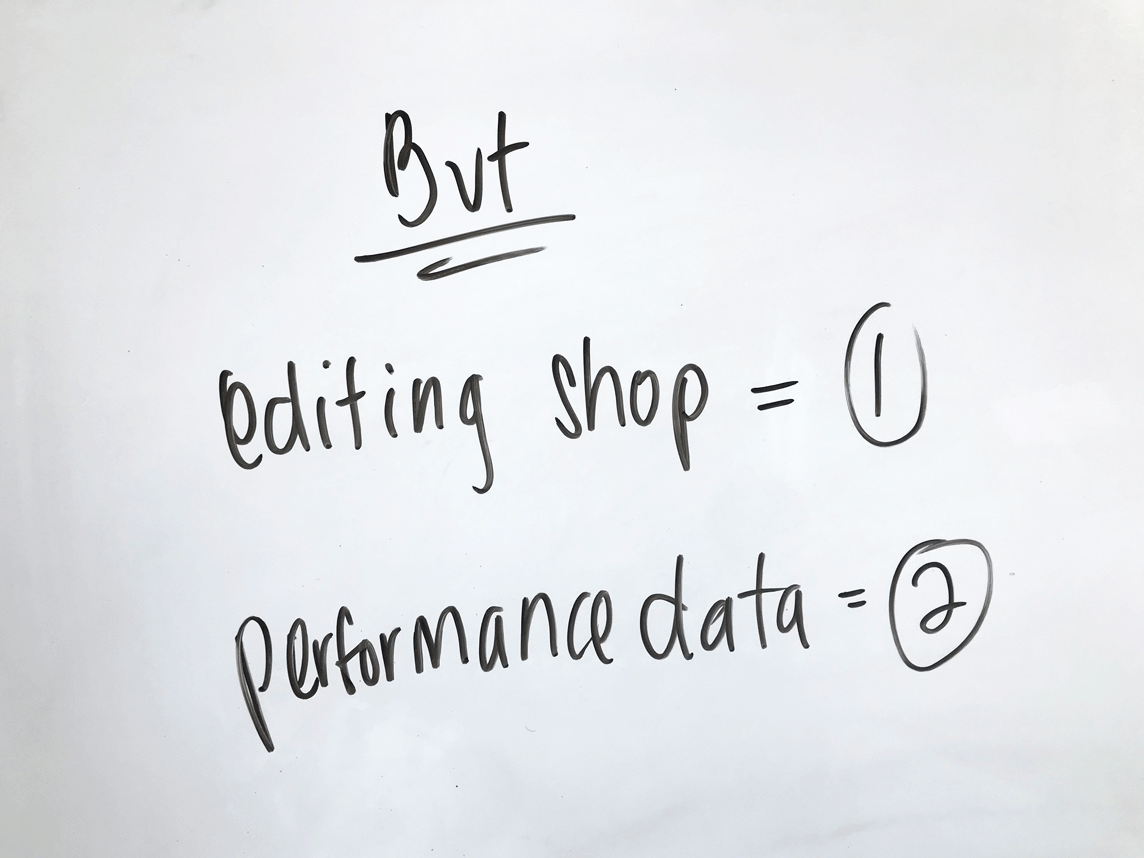 But
editing shop = 1
performance data = 2